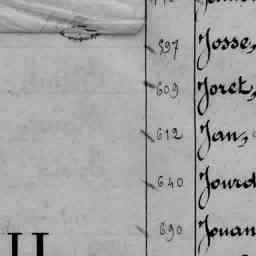 597 Josse,
609 Joret,
612 Jan,
640 Jourd
690 Jouan